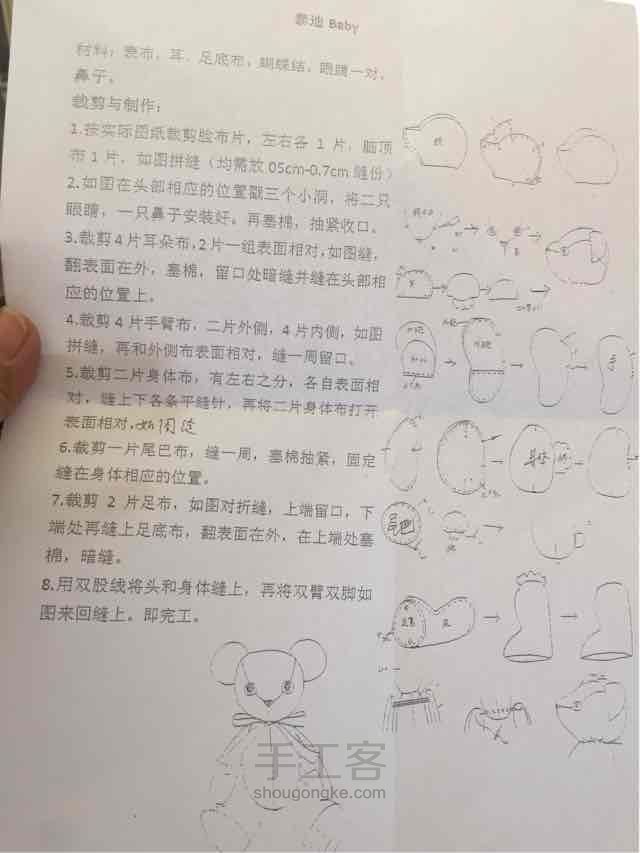 泰迪 Baby
材料：表布，耳、足底布，蝴蝶结，眼睛一对，
鼻子。
裁剪与制作：
1.按实际图纸裁剪脸布片，左右各 1 片，脑顶
布 1 片，如图拼缝（均需放 05cm-0.7cm 缝份）
2.如图在头部相应的位置戳三个小洞，将二只
眼睛，一只鼻子安装好。再塞棉，抽紧收口。
3.裁剪 4 片耳朵布，2 片一组表面相对，如图缝，
翻表面在外，塞棉，留口处暗缝并缝在头部相
应的位置上。
4.裁剪 4 片手臂布，二片外侧，4 片内侧，如图
拼缝，再和外侧布表面相对，缝一周留口。
5.裁剪二片身体布，有左右之分，各自表面相
对，缝上下各条平缝针，再将二片身体布打开
表面相对，如图缝
6.裁剪一片尾巴布，缝一周，塞棉抽紧，固定
缝在身体相应的位置。
7.裁剪 2 片足布，如图对折缝，上端留口，下
端处再缝上足底布，翻表面在外，在上端处塞
棉，暗缝。
8.用双股线将头和身体缝上，再将双臂双脚如
图来回缝上。即完工。
身体
尾巴
足
手工客
shougongke.com